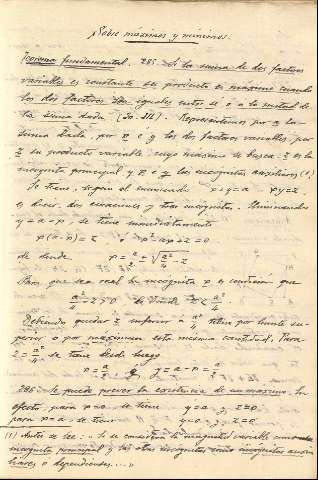 Sobre máximos y mínimos.
Teorema fundamental. 285. Si la suma de dos factores
variables es constante su producto es máximo cuando
los dos factores son iguales entre sí o a la mitad de
la suma dada. Representemos por a la
suma dada, por x e y los dos factores variables, por
z su producto variable cuyo máximo se busca: z es la
incógnita principal, y x e y las incógnitas auxiliares (1)
Se tiene, según el enunciado x+y=a xy=z,
es decir, dos ecuaciones y tres incógnitas. Eliminando
y=a-x, se tiene inmediatamente
x(a-x)=z ó x²-ax+z=0
de donde x = a/2 ± √a²/4 - z
Para que sea real la incógnita x es condición que
a²/4 - z ≥ 0 de donde z ≤ a²/4
Debiendo quedar z inferior a a²/4 tiene por límite su-
perior o por maximum esta misma cantidad. Para
z = a²/4 se tiene desde luego
x = a/2 y y = a-x = a/2
286 Se puede prever la existencia de un máximo. En
efecto, para x=0 se tiene y=a, z=0
para x=a se tiene y=0, z=0
(1) Antes se lee: "Si se considera la magnitud variable como
incógnita principal y las otras incógnitas como incógnitas auxi-
liares o dependientes...."